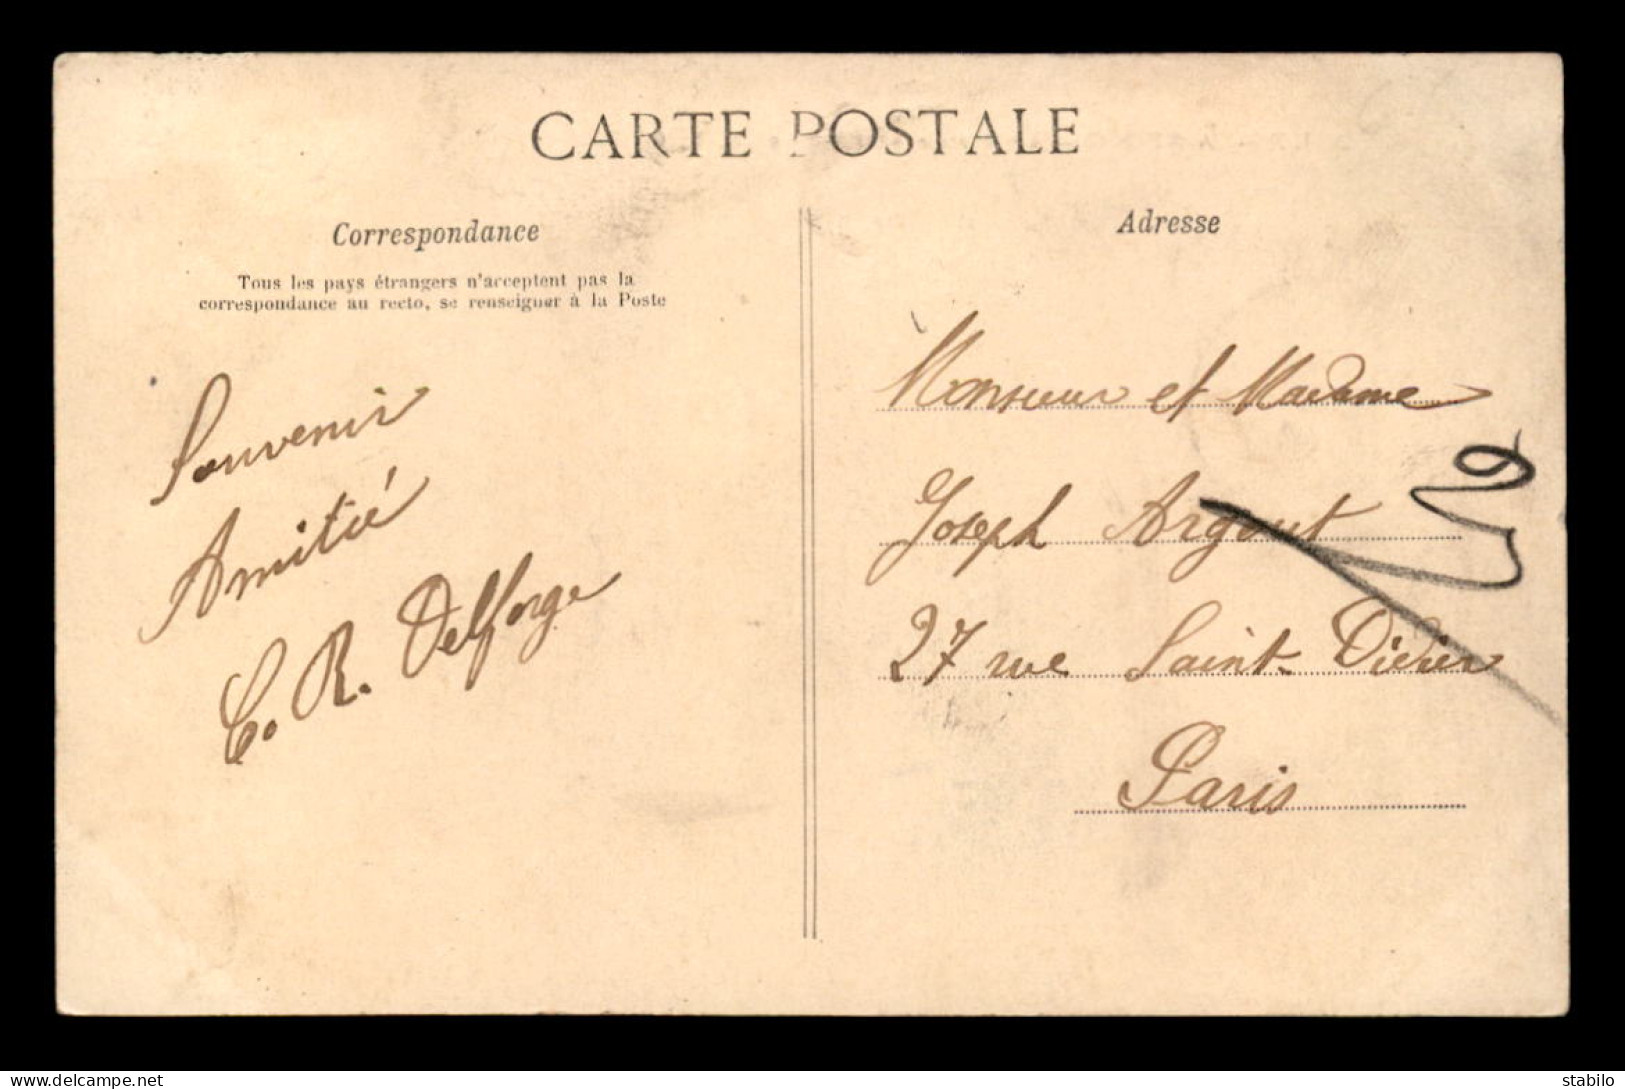 CARTE POSTALE
Correspondance
Tous les pays étrangers n'acceptent pas la
correspondance au recto, se renseigner à la Poste
Souvenir
Amitié
C. R. Delforge
Adresse
Monsieur et Madame
Joseph Argout
27 rue Saint-Didier
Paris
delcampe.net
stabilo